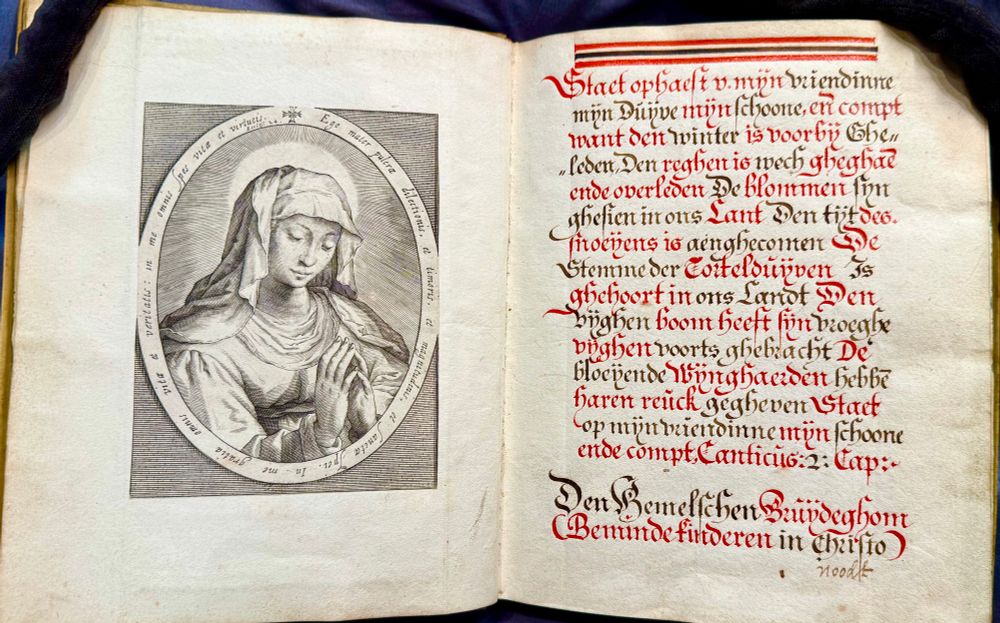 Ego mater pulcra dilectionis, et timoris, et magnitudinis, et sanctæ spei. In me gratia omnis vitæ et veritatis: in me omnis spes vitæ et virtutis.
Staet ophaest v. mijn vriendinne
mijn Duÿve mijn schoone, en̄ compt
want den winter is voorbij Ghe„
„leden, Den reghen is wech gheghaē
ende overleden De blommen sijn
ghesien in ons Lant Den tijt des.
snoeyens is aenghecomen De
Stemme der Tortelduÿven Is
ghehoort in ons Landt Den
vÿghen boom heeft sijn vroeghe
vÿghen voorts ghebracht De
bloeÿende Wÿnghaerden hebbē
haren reuck gegheven Staet
op mijn vriendinne mijn schoone
ende compt, Canticus: 2: Cap:
Den Hemelschen Bruÿdeghom
(Beminde kinderen in Christo)
noodt